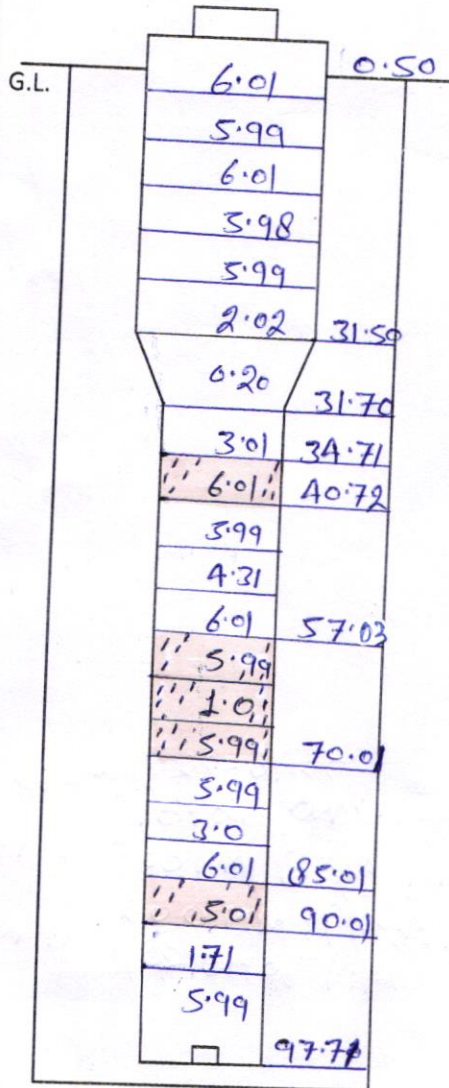 0.50
G.L.
6.01
5.99
6.01
5.98
5.99
2.02 31.50
0.20
31.70
3.01 34.71
6.01 40.72
5.99
4.31
6.01 57.03
5.99
1.0
5.99 70.01
5.99
3.0
6.01 85.01
5.01 90.01
1.71
5.99
97.71